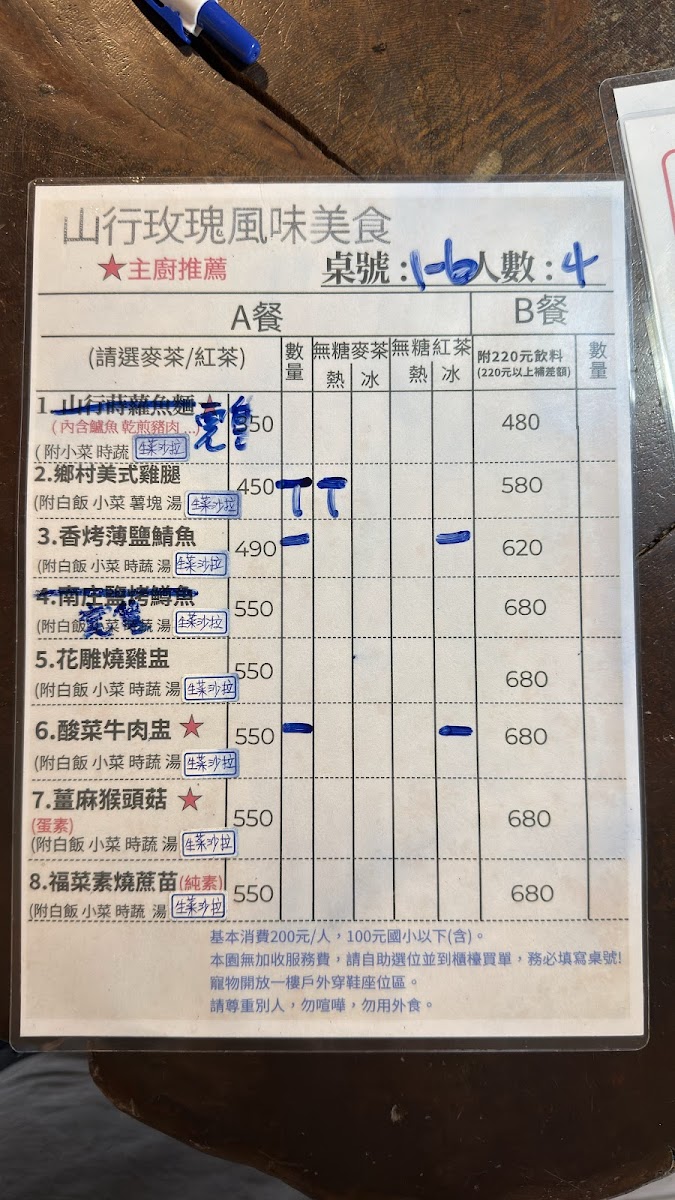 山行玫瑰風味美食
★主廚推薦 桌號:1-6 人數:4
A餐 B餐
(請選麥茶/紅茶) 數量 無糖麥茶 熱 冰 無糖紅茶 熱 冰 附220元飲料 (220元以上補差額) 數量
1.山行蒔蘿魚麵★ 完售 550 480
(內含鱸魚 乾煎豬肉...)
(附小菜 時蔬 生菜沙拉
2.鄉村美式雞腿 450 丅 丅 580
(附白飯 小菜 薯塊 湯 生菜沙拉
3.香烤薄鹽鯖魚 490 一 一 620
(附白飯 小菜 時蔬 湯 生菜沙拉
4.南庄鹽烤鱒魚 完售 550 680
(附白飯 小菜 時蔬 湯 生菜沙拉
5.花雕燒雞盅 550 680
(附白飯 小菜 時蔬 湯 生菜沙拉
6.酸菜牛肉盅★ 550 一 一 680
(附白飯 小菜 時蔬 湯 生菜沙拉
7.薑麻猴頭菇★ 550 680
(蛋素)
(附白飯 小菜 時蔬 湯 生菜沙拉
8.福菜素燒蔗苗(純素) 550 680
(附白飯 小菜 時蔬 湯 生菜沙拉
基本消費200元/人,100元國小以下(含)。
本園無加收服務費,請自助選位並到櫃檯買單,務必填寫桌號!
寵物開放一樓戶外穿鞋座位區。
請尊重別人,勿喧嘩,勿用外食。